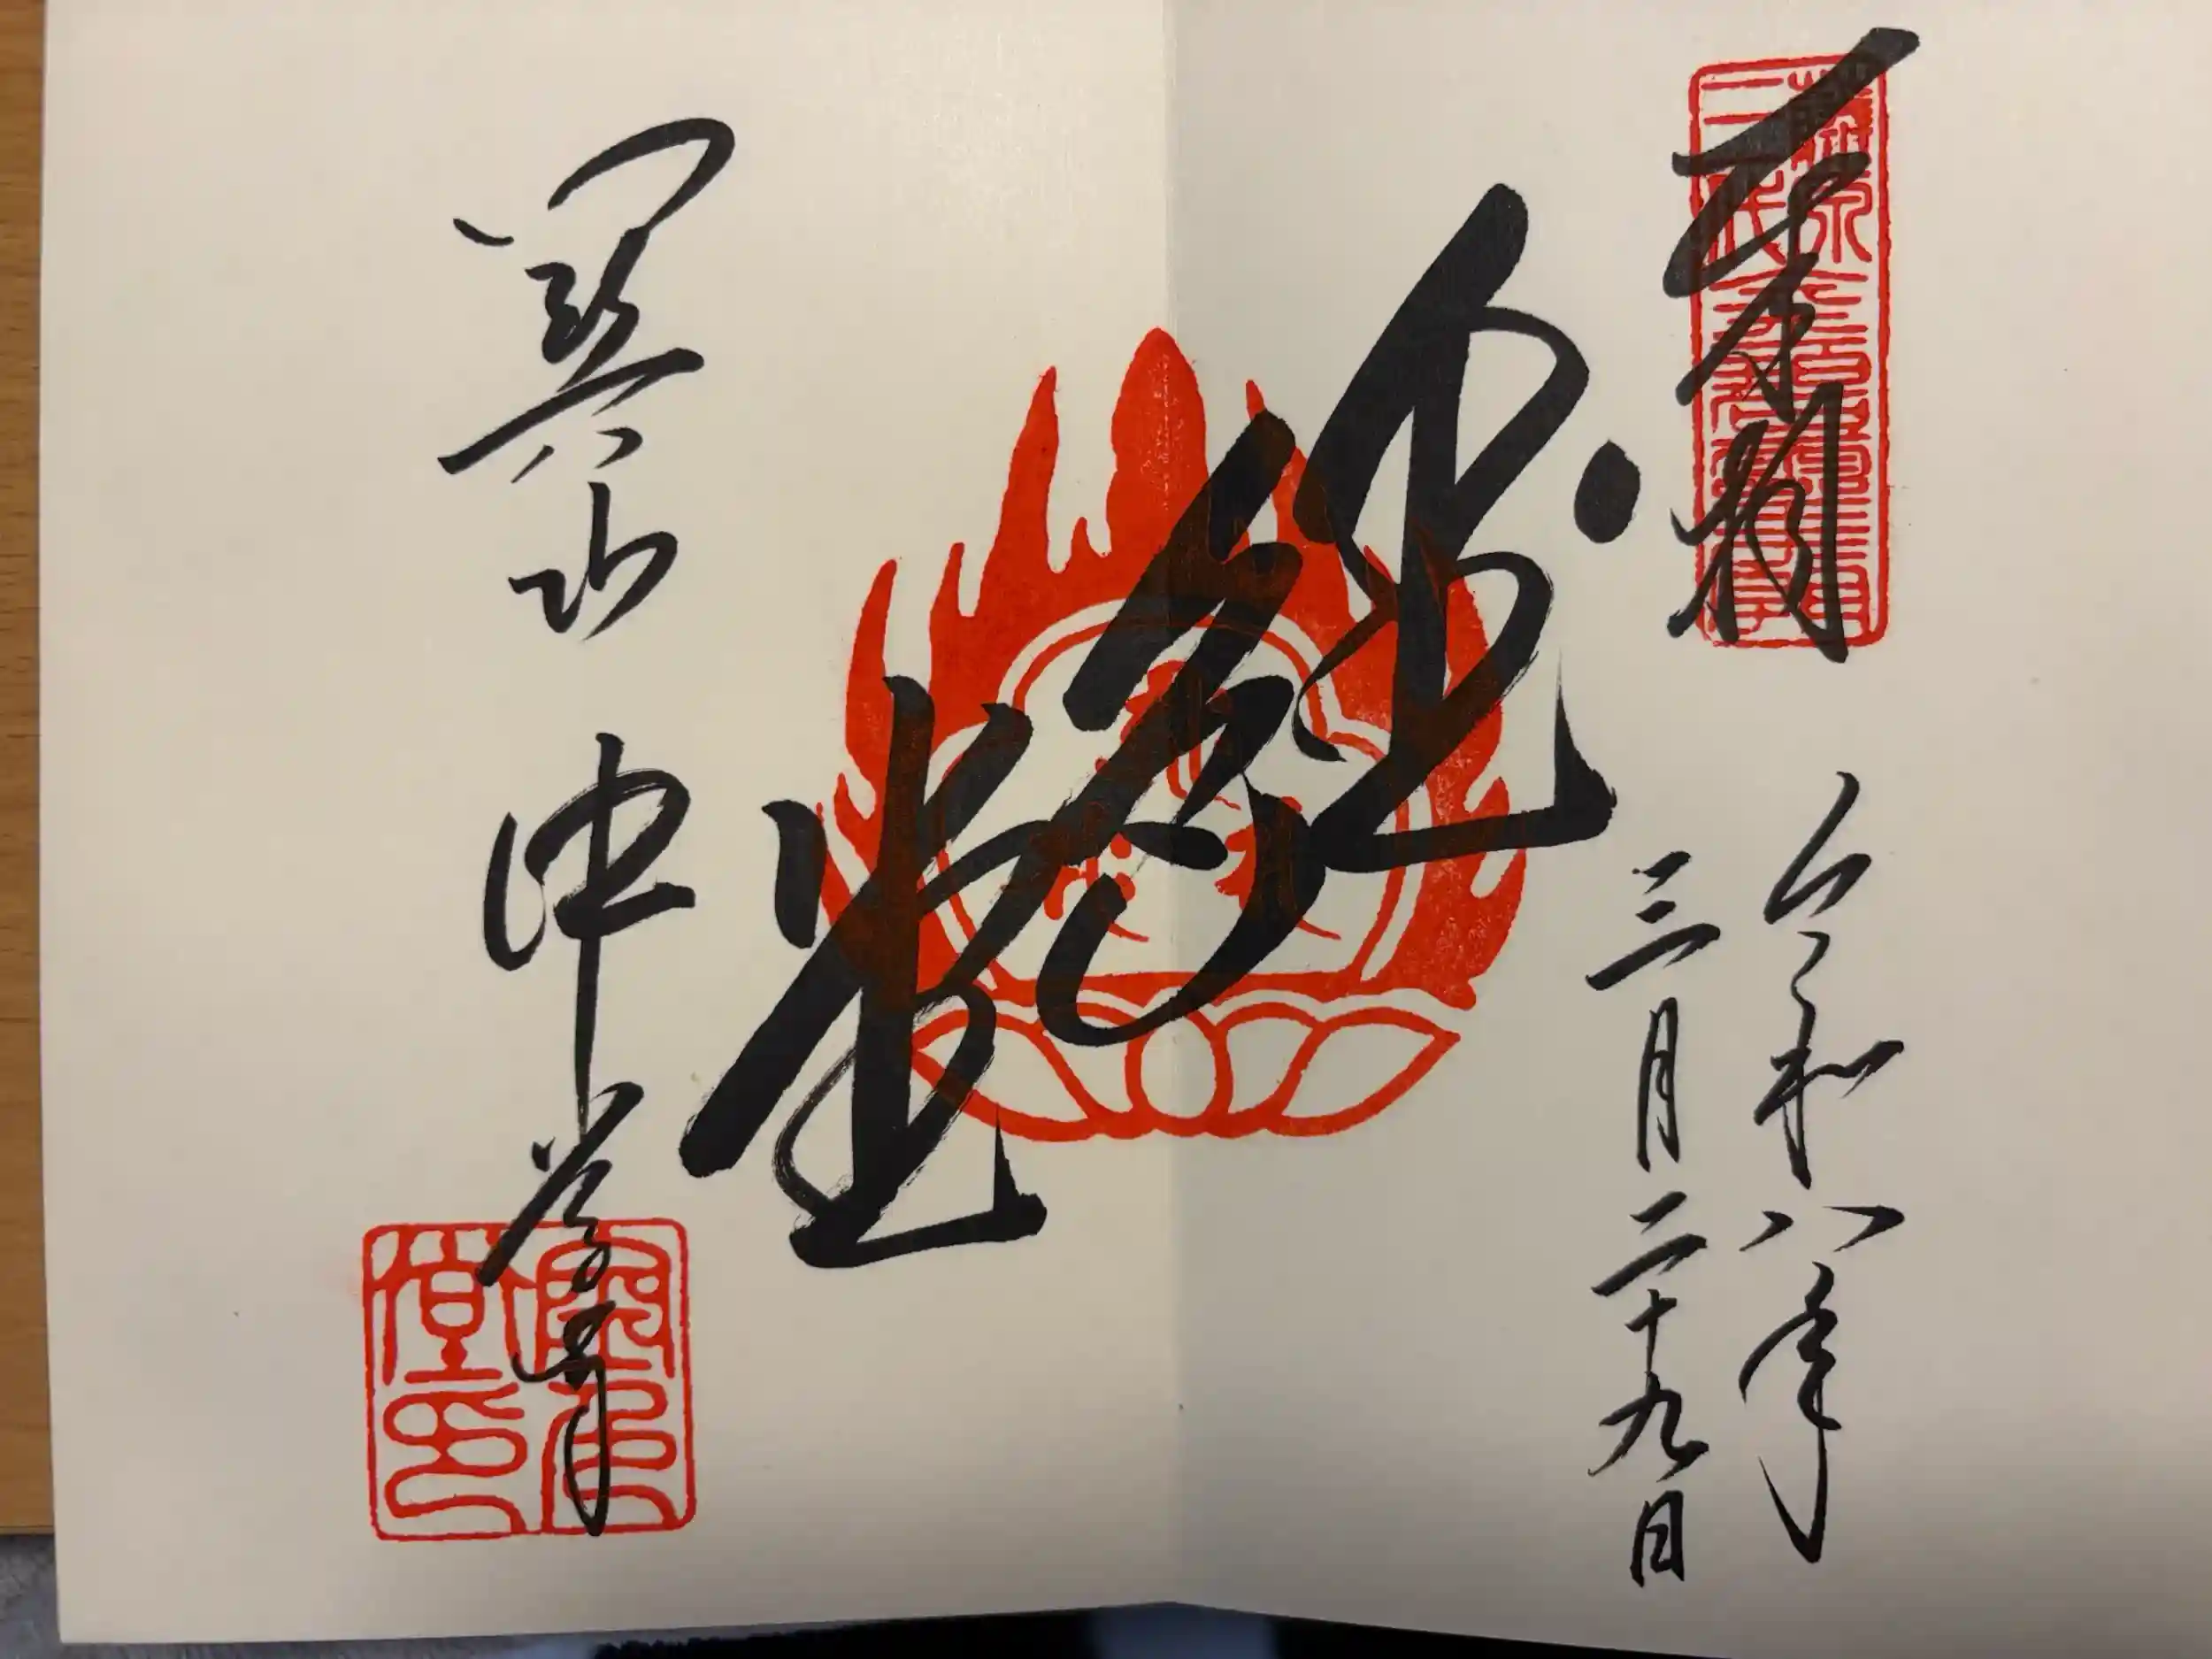 奉拝
令和八年
三月二十九日
金色堂
關山 中尊寺